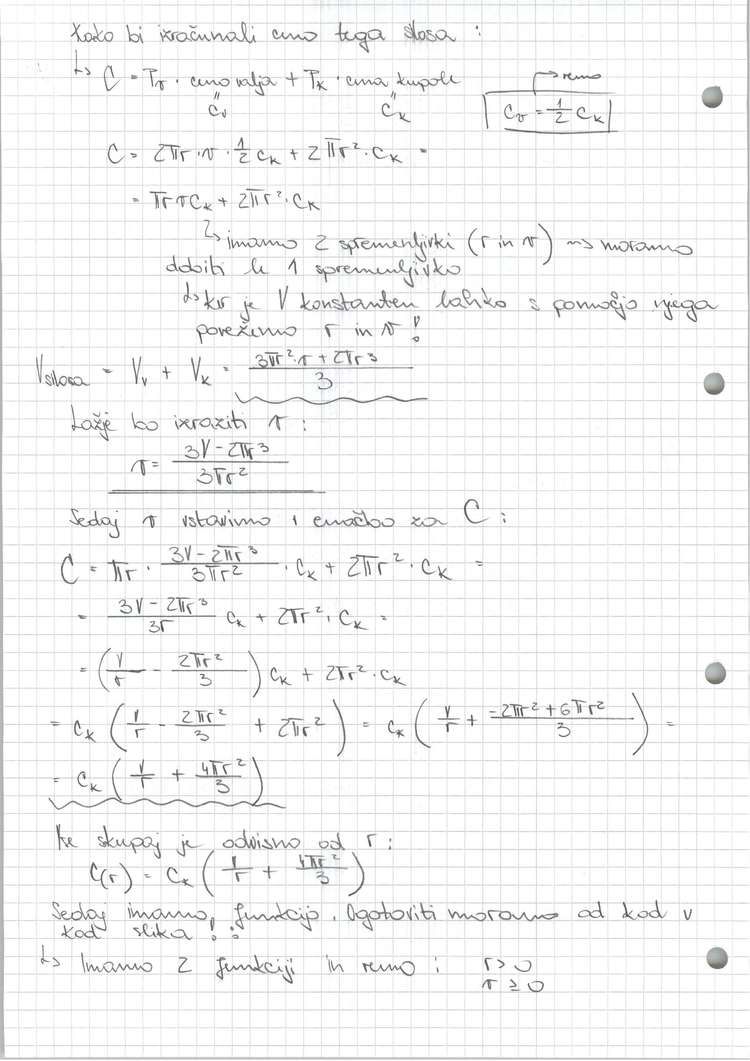 Kako bi izračunali ceno tega silosa :
↳ C = Pv · cena valja + Pk · cena kupole
= cv
= ck
→ vemo
cv = 1/2 ck
C = 2πr · v · 1/2 ck + 2πr² · ck =
= πrvck + 2πr² · ck
↳ imamo 2 spremenljivki (r in v) ⇝ moramo
dobiti le 1 spremenljivko
↳ ker je V konstanten lahko s pomočjo njega
povežemo r in v!
Vsilosa = Vv + Vk = (3πr² · v + 2πr³)/3
Lažje bo izraziti v :
v = (3V - 2πr³)/(3πr²)
Sedaj v vstavimo v enačbo za C :
C = πr · (3V - 2πr³)/(3πr²) · ck + 2πr² · ck =
= (3V - 2πr³)/(3r) ck + 2πr² · ck =
= (V/r - 2πr²/3) ck + 2πr² · ck
= ck (V/r - 2πr²/3 + 2πr²) = ck (V/r + (-2πr² + 6πr²)/3) =
= ck (V/r + 4πr²/3)
Vse skupaj je odvisno od r :
C(r) = ck (V/r + 4πr²/3)
Sedaj imamo funkcijo. Ugotoviti moramo od kod v
kod slika !
↳ Imamo 2 funkciji in vemo : r > 0
v ≥ 0